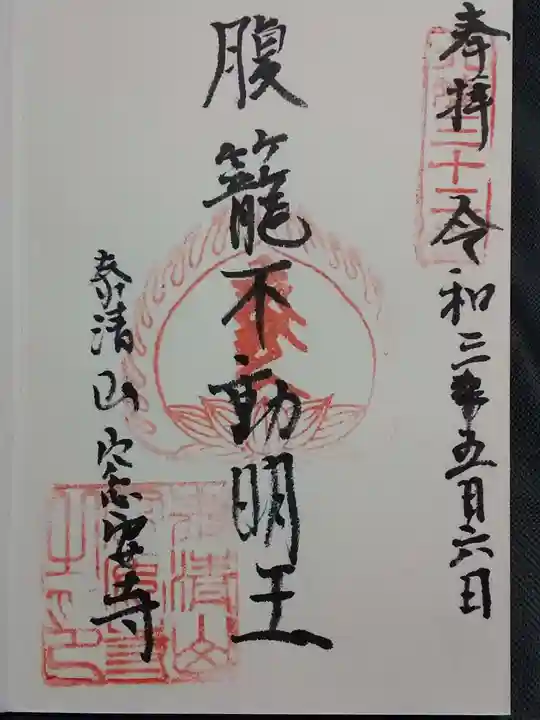 奉拝 令和三年五月六日
腹籠不動明王
泰清山 安寺